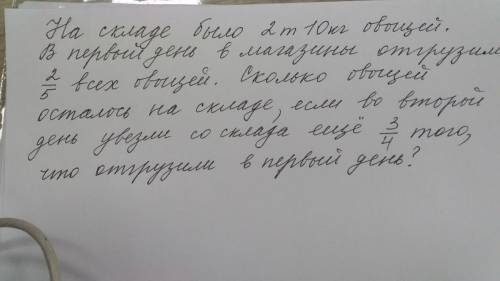 На складе было 2 т 10 кг овощей.
В первый день в магазины отгрузили
2/5 всех овощей. Сколько овощей
осталось на складе, если во второй
день увезли со склада ещё 3/4 того,
что отгрузили в первый день?